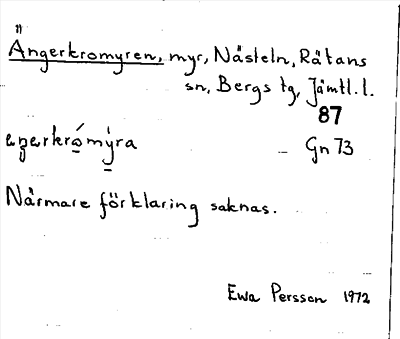 Ängerkromyren, myr, Nästeln, Rätans
sn, Bergs tg, Jämtl. l.
87
Gn 73
Närmare förklaring saknas.
Ewa Persson 1972